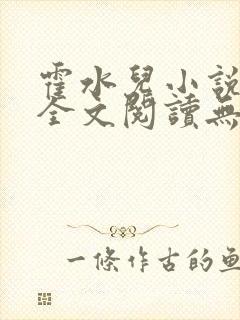 霍水兒小說
全文閱讀無
一條作古的魚